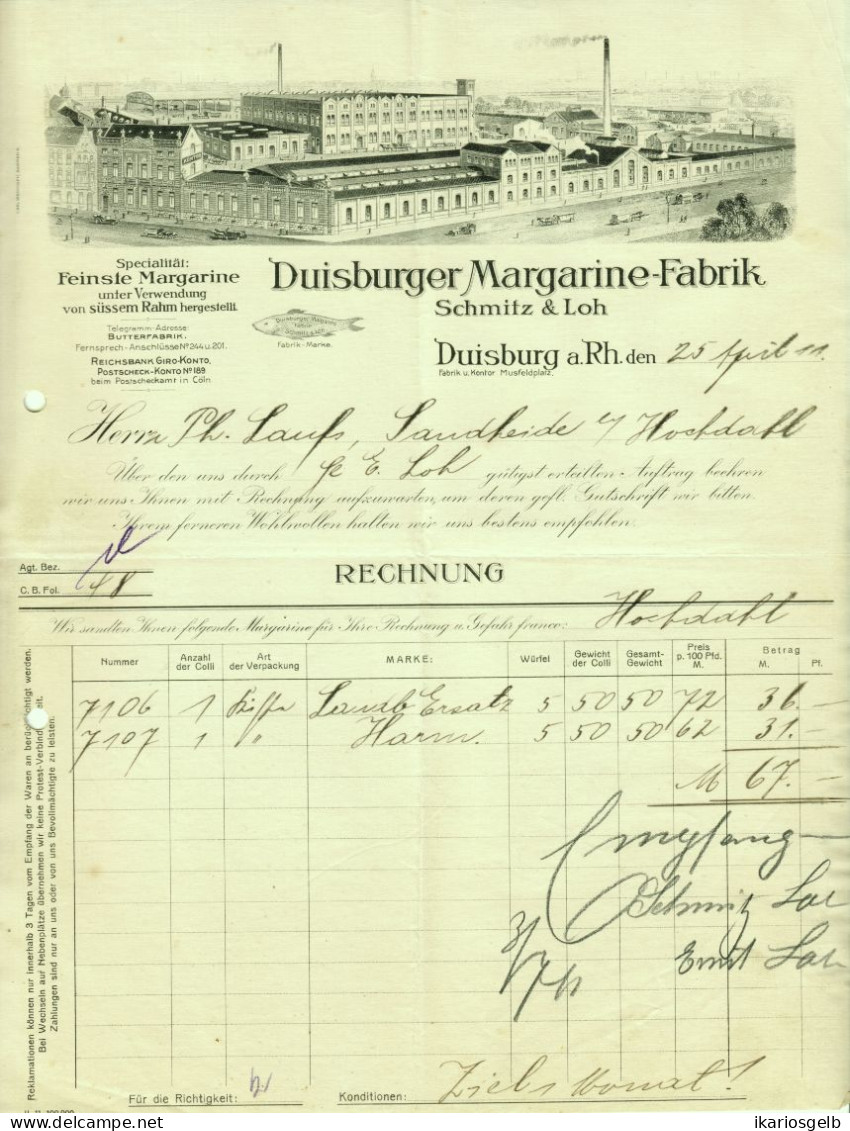 Specialität:
Feinste Margarine
unter Verwendung
von süssem Rahm hergestellt.
Telegramm-Adresse:
BUTTERFABRIK.
Fernsprech-Anschlüsse Nº 244 u. 201.
REICHSBANK GIRO-KONTO.
POSTSCHECK-KONTO Nº 189
beim Postscheckamt in Cöln.
Duisburger Margarine-Fabrik
Schmitz & Loh
Duisburger Margarine
Fabrik
Schmitz & Loh
Fabrik-Marke.
Duisburg a. Rh. den 25 April 11.
Fabrik u. Kontor Musfeldplatz.
Herrn Ph. Laufs, Sandheide b/ Hochdahl
Über den uns durch E. Loh gütigst erteilten Auftrag beehren
wir uns Ihnen mit Rechnung aufzuwarten, um deren gefl. Gutschrift wir bitten.
Ihrem ferneren Wohlwollen halten wir uns bestens empfohlen.
Agt. Bez.
C. B. Fol. 48
RECHNUNG
Wir sandten Ihnen folgende Margarine für Ihre Rechnung u. Gefahr franco: Hochdahl
Nummer Anzahl der Colli Art der Verpackung MARKE: Würfel Gewicht der Colli Gesamt-Gewicht Preis p. 100 Pfd. M. Betrag M. Pf.
7106 1 Kiste Landb Ersatz 5 50 50 72 36.—
7107 1 " Harm. 5 50 50 62 31.—
M 67.—
Empfang
Schmitz Loh
Ernst Loh
3/7 11
Reklamationen können nur innerhalb 3 Tagen vom Empfang der Waren an berücksichtigt werden.
Bei Wechseln auf Nebenplätze übernehmen wir keine Protest-Verbindlichkeit.
Zahlungen sind nur an uns oder von uns Bevollmächtigte zu leisten.
Für die Richtigkeit:
Konditionen: Ziel 1 Monat!
ikariosgelb